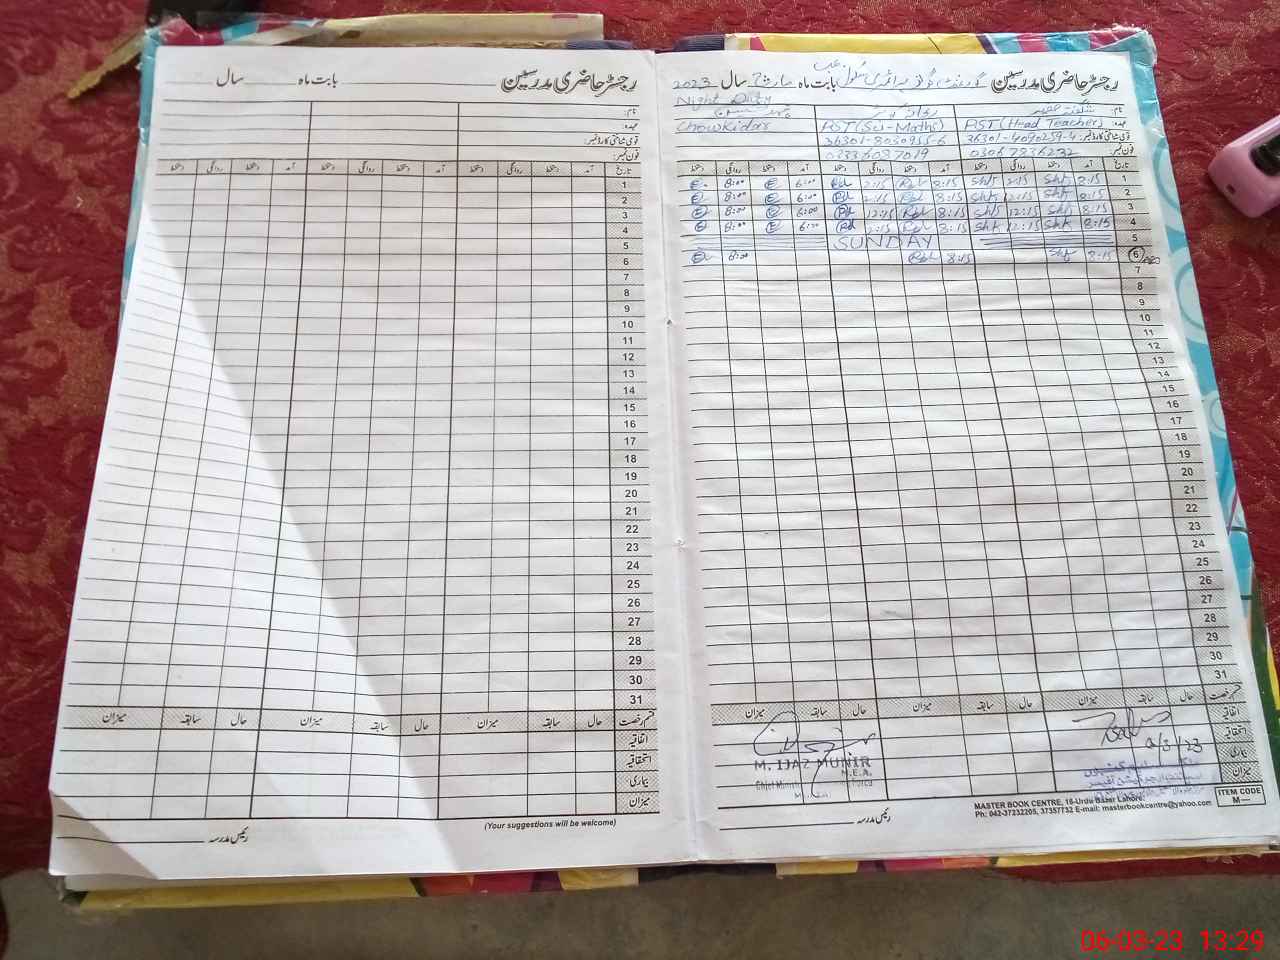 رجسٹر حاضری مدرسین بابت ماہ سال
نام:
عہدہ:
قومی شناختی کارڈ نمبر:
فون نمبر:
تاریخ آمد دستخط روانگی دستخط آمد دستخط روانگی دستخط آمد دستخط روانگی دستخط
1
2
3
4
5
6
7
8
9
10
11
12
13
14
15
16
17
18
19
20
21
22
23
24
25
26
27
28
29
30
31
قسم رخصت حال سابقہ میزان حال سابقہ میزان حال سابقہ میزان
اتفاقیہ
استحقاقیہ
بیماری
میزان
رئیس مدرسہ
(Your suggestions will be welcome)
رجسٹر حاضری مدرسین بابت ماہ مارچ سال 2023
Night Duty
نام:
عہدہ: PST (Head Teacher) PST (Sci-Maths) Chowkidar
قومی شناختی کارڈ نمبر: 36301-4090259-4 36301-8030955-6
فون نمبر: 03067836232 03336087019
تاریخ آمد دستخط روانگی دستخط آمد دستخط روانگی دستخط آمد دستخط روانگی دستخط
1 8:15 2:15 8:15 2:15 6:00 8:00
2 8:15 12:15 8:15 2:15 6:00 8:00
3 8:15 12:15 8:15 12:15 6:00 8:00
4 8:15 12:15 8:15 2:15 6:00 8:00
5 SUNDAY
6 8:15 8:15 8:00
7
8
9
10
11
12
13
14
15
16
17
18
19
20
21
22
23
24
25
26
27
28
29
30
31
قسم رخصت حال سابقہ میزان حال سابقہ میزان حال سابقہ میزان
اتفاقیہ
استحقاقیہ
بیماری
میزان
M. IJAZ MUNIR
M.E.A.
رئیس مدرسہ
MASTER BOOK CENTRE, 16-Urdu Bazar Lahore.
Ph: 042-37232205, 37357732 E-mail: masterbookcentre@yahoo.com
ITEM CODE
M—
06-03-23 13:29